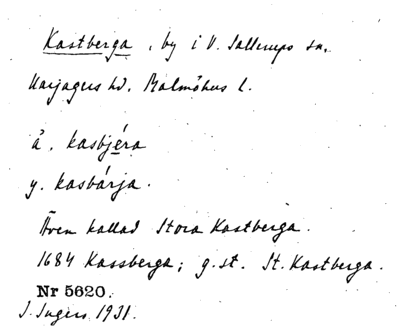 Kastberga, by i V. Sallerups sn,
Harjagers hd, Malmöhus l.
ä. kasbjéra
y. kasbárja.
Även kallad Stora Kastberga.
1684 Kassberga; g.st. St. Kastberga.
Nr 5620.
I. Ingers 1931.